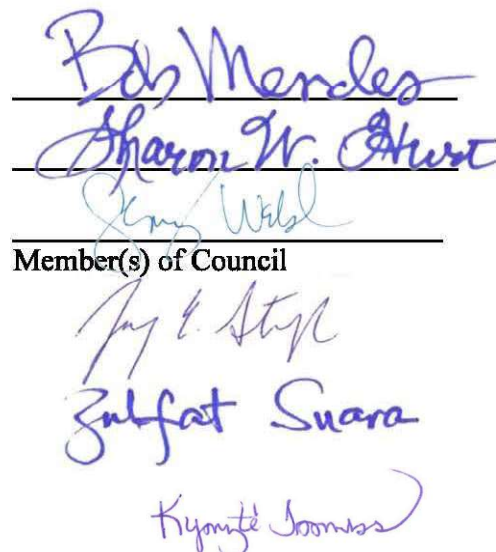 Bob Mendes
Sharon W. Hurst
Welsch
Member(s) of Council
E.
Zulfat Suara
Kyonzté Toombs